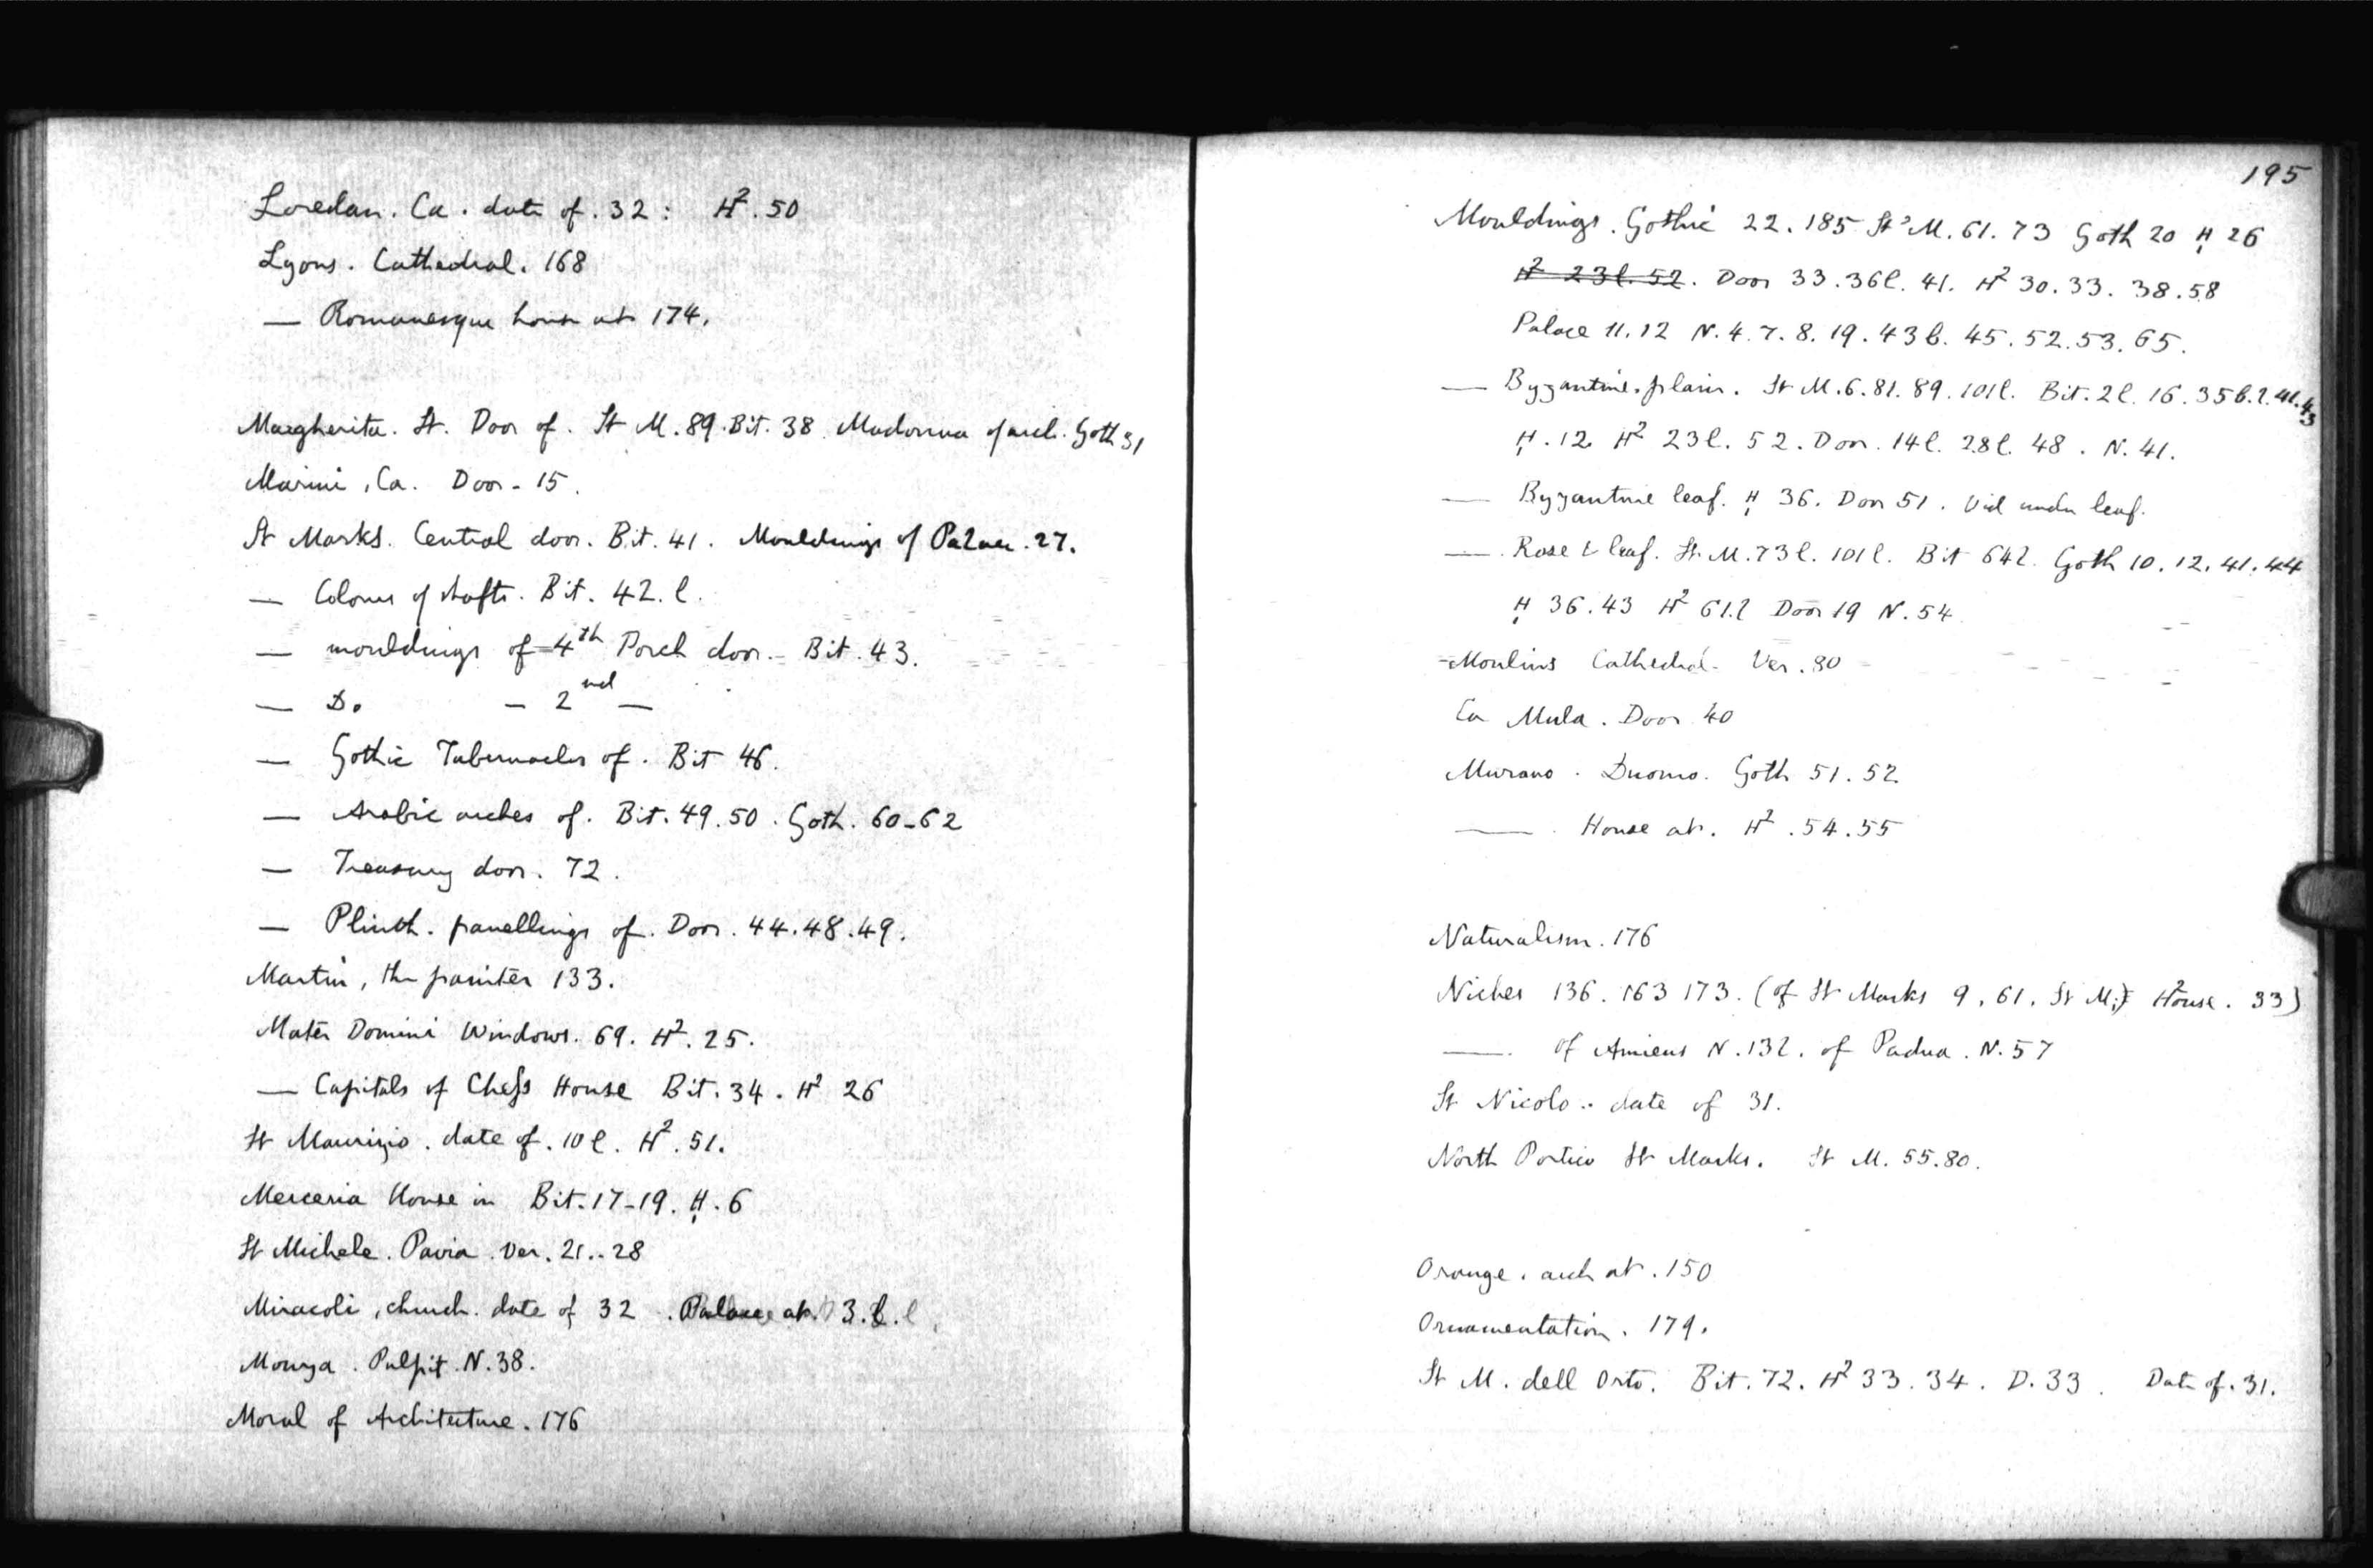 Loredan. Ca. date of. 32: H². 50
Lyons. Cathedral. 168
— Romanesque house at 174.
Margherita. St. Door of. St M. 89. Bit. 38 Madonna of arch. Goth 31
Marini, Ca. Door - 15.
St Marks. Central door. Bit. 41. Mouldings of Palace. 27.
— Colour of shafts. Bit. 42. l.
— mouldings of 4th Porch door. - Bit. 43.
— Do — 2nd —
— Gothic Tabernacles of. Bit 46.
— Arabic arches of. Bit. 49. 50. Goth. 60-62
— Treasury door. 72.
— Plinth. panellings of. Door. 44. 48. 49.
Martin, the painter 133.
Mater Domini Windows. 69. H². 25.
— Capitals of Chess House Bit. 34. H² 26
St Maurizio. date of. 10 l. H². 51.
Merceria House in Bit. 17-19. H. 6
St Michele. Pavia. Ver. 21..28
Miracoli, church. date of 32. Palace at. 3.
Monza. Pulpit. N. 38.
Moral of Architecture. 176
195
Mouldings. Gothic 22. 185 St M. 61. 73 Goth 20 H 26
H² 23l. 52. Door 33. 36l. 41. H² 30. 33. 38. 58
Palace 11. 12 N. 4. 7. 8. 19. 43 b. 45. 52. 53. 65.
— Byzantine. plain. St M. 6. 81. 89. 101l. Bit. 2l. 16. 35 b. l. 41. 43
H. 12 H² 23l. 52. Door. 14l. 28l. 48. N. 41.
— Byzantine leaf. H 36. Door 51. Vid under leaf.
— Rose & leaf. St. M. 73l. 101l. Bit 64l. Goth 10. 12. 41. 44
H 36. 43 H² 61. l Door 19 N. 54
Moulins Cathedral. Ver. 80
Ca Mula. Door 40
Murano. Duomo. Goth 51. 52
— House at. H². 54. 55
Naturalism. 176
Niches 136. 163 173. (of St Marks 9, 61. St M.) House². 33)
— of Amiens N. 13l. of Padua. N. 57
St Nicolo. date of 31.
North Portico St Marks. St M. 55. 80.
Orange. arch at. 150
Ornamentation. 179.
St M. dell Orto. Bit. 72. H² 33. 34. D. 33. Date of. 31.